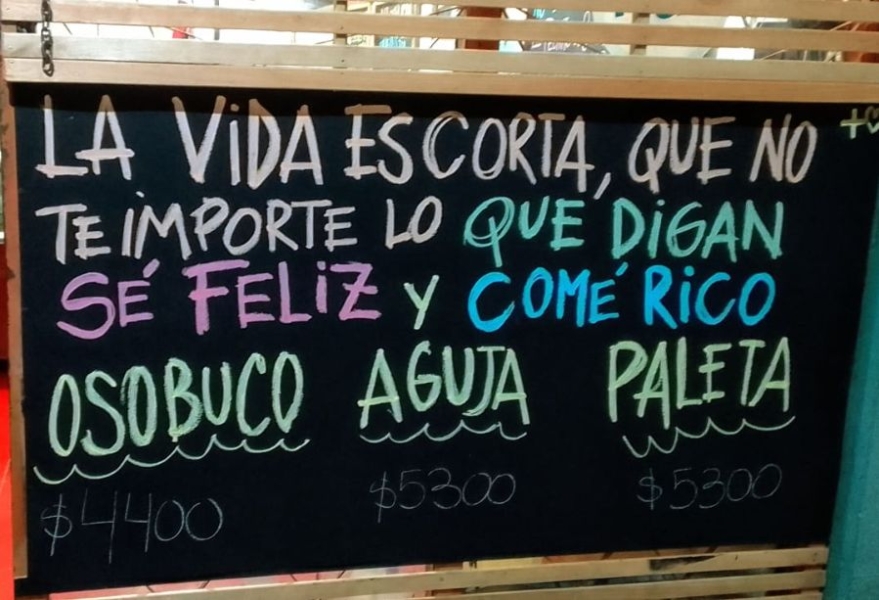 LA ViDA ES CORTA, QUE NO
TE iMPORTE LO QUE DiGAN
SÉ FELiZ Y COMÉ RiCO
OSOBUCO AGUJA PALETA
$4400 $5300 $5300